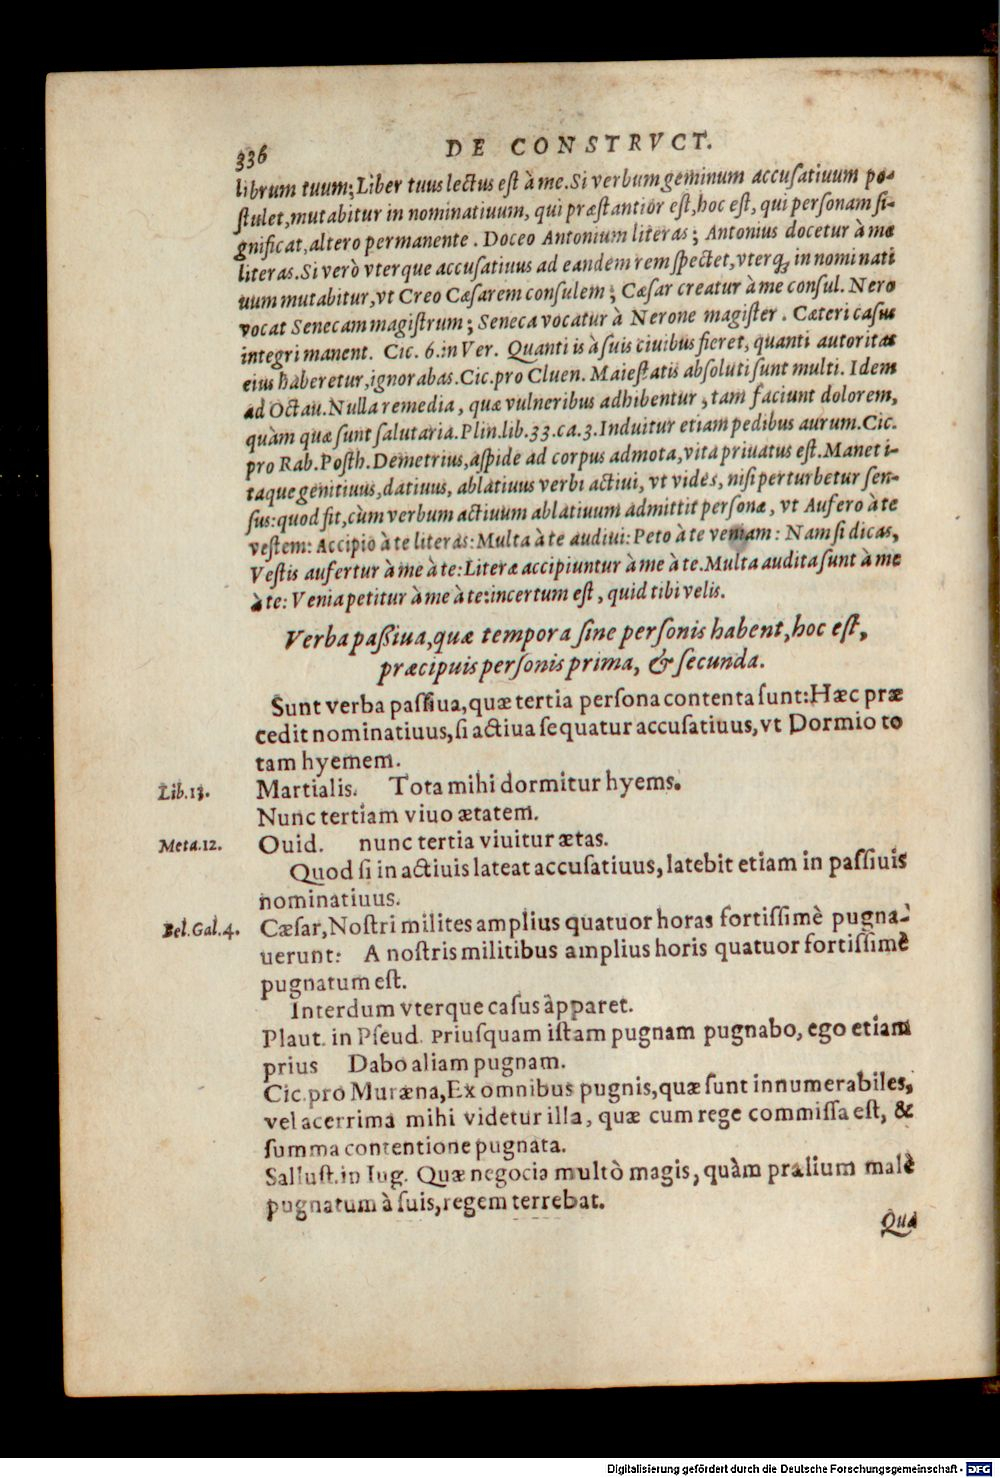 336 DE CONSTRVCT.
librum tuum; Liber tuus lectus est à me. Si verbum geminum accusatiuum po-
stulet, mutabitur in nominatiuum, qui præstantior est, hoc est, qui personam si-
gnificat, altero permanente. Doceo Antonium literas; Antonius docetur à me
literas. Si verò vterque accusatiuus ad eandem rem spectet, vterq; in nominati
uum mutabitur, vt Creo Cæsarem consulem; Cæsar creatur à me consul. Nero
vocat Senecam magistrum; Seneca vocatur à Nerone magister. Cæteri casus
integri manent. Cic. 6. in Ver. Quanti is à suis ciuibus fieret, quanti autoritas
eius haberetur, ignorabas. Cic. pro Cluen. Maiestatis absoluti sunt multi. Idem
ad Octau. Nulla remedia, quæ vulneribus adhibentur, tam faciunt dolorem,
quàm quæ sunt salutaria. Plin. lib. 33. ca. 3. Induitur etiam pedibus aurum. Cic.
pro Rab. Posth. Demetrius, aspide ad corpus admota, vita priuatus est. Manet i-
taque genitiuus, datiuus, ablatiuus verbi actiui, vt vides, nisi perturbetur sen-
sus: quod fit, cùm verbum actiuum ablatiuum admittit personæ, vt Aufero à te
vestem: Accipio à te literas: Multa à te audiui: Peto à te veniam: Nam si dicas,
Vestis aufertur à me à te: Literæ accipiuntur à me à te. Multa audita sunt à me
à te: Venia petitur à me à te: incertum est, quid tibi velis.
Verba passiua, quæ tempora sine personis habent, hoc est,
præcipuis personis prima, & secunda.
Sunt verba passiua, quæ tertia persona contenta sunt: Hæc præ
cedit nominatiuus, si actiua sequatur accusatiuus, vt Dormio to
tam hyemem.
Lib. 13. Martialis. Tota mihi dormitur hyems.
Nunc tertiam viuo ætatem.
Meta. 12. Ouid. nunc tertia viuitur ætas.
Quod si in actiuis lateat accusatiuus, latebit etiam in passiuis
nominatiuus.
Bel. Gal. 4. Cæsar, Nostri milites amplius quatuor horas fortissimè pugna-
uerunt: A nostris militibus amplius horis quatuor fortissimè
pugnatum est.
Interdum vterque casus apparet.
Plaut. in Pseud. Priusquam istam pugnam pugnabo, ego etiam
prius Dabo aliam pugnam.
Cic. pro Muræna, Ex omnibus pugnis, quæ sunt innumerabiles,
vel acerrima mihi videtur illa, quæ cum rege commissa est, &
summa contentione pugnata.
Sallust. in Iug. Quæ negocia multò magis, quàm prælium malè
pugnatum à suis, regem terrebat.
Qua
Digitalisierung gefördert durch die Deutsche Forschungsgemeinschaft - DFG